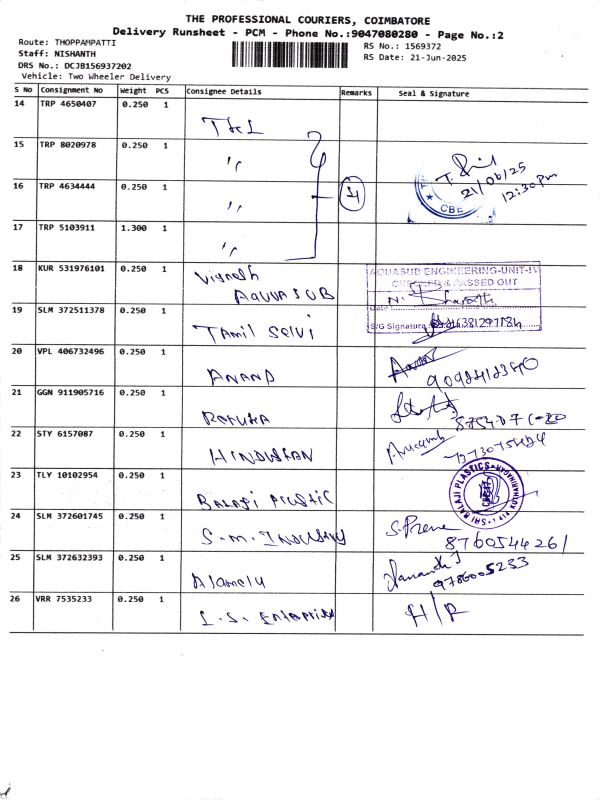 THE PROFESSIONAL COURIERS, COIMBATORE
Delivery Runsheet - PCM - Phone No.:9047080280 - Page No.:2
Route: THOPPAMPATTI
RS No.: 1569372
Staff: NISHANTH
RS Date: 21-Jun-2025
DRS No.: DCJB156937202
Vehicle: Two Wheeler Delivery
S No Consignment No Weight PCS Consignee Details Remarks Seal & Signature
14 TRP 4650407 0.250 1
15 TRP 8020978 0.250 1 "
16 TRP 4634444 0.250 1 " 21/06/25 12:30pm
CBE
17 TRP 5103911 1.300 1 "
18 KUR 531976101 0.250 1 Vignesh AQUASUB AQUASUB ENGINEERING-UNIT-IV
PASSED OUT
N. Bharath
S/G Signature
19 SLM 372511378 0.250 1 Tamil Selvi
20 VPL 406732496 0.250 1 ANAND
21 GGN 911905716 0.250 1
22 STY 6157087 0.250 1 HINDUSTAN
23 TLY 10102954 0.250 1 BALAJI PLASTIC SRI BALAJI PLASTICS
24 SLM 372601745 0.250 1 S.M. INDUSTRY 8760544261
25 SLM 372632393 0.250 1 Alamelu 9786005233
26 VRR 7535233 0.250 1 L.S. Enterprises H/R